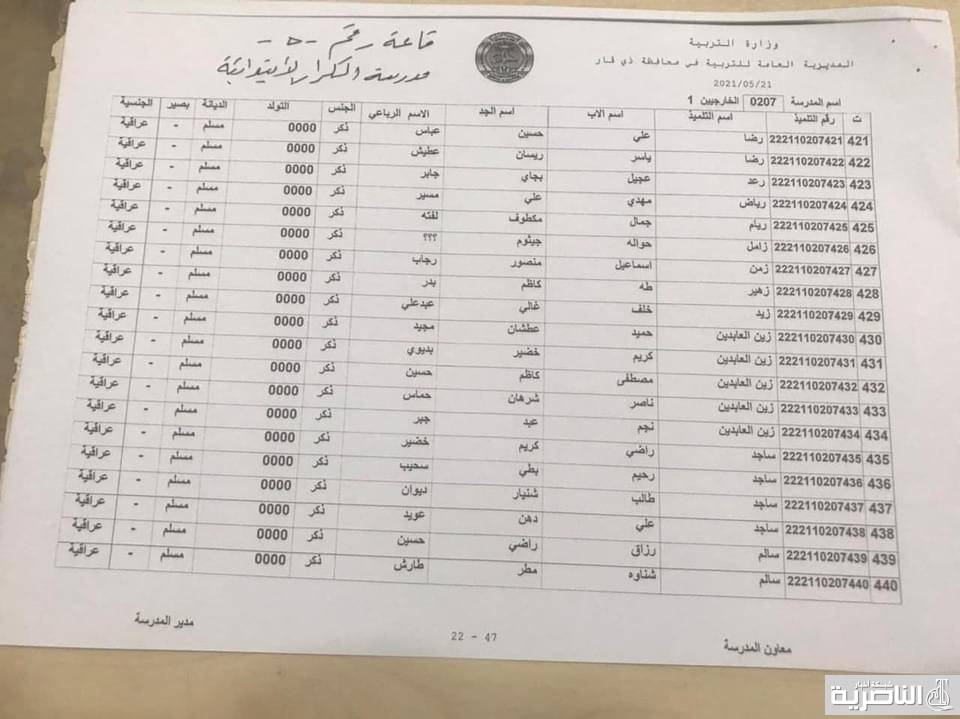 وزارة التربية
المديرية العامة للتربية في محافظة ذي قار
2021/05/21
قاعة رقم - ٥ -
مدرسة الكرار الابتدائية
اسم المدرسة 0207 الخارجيين 1
ت رقم التلميذ اسم التلميذ اسم الاب اسم الجد الاسم الرباعي الجنس التولد الديانة بصير الجنسية
421 222110207421 رضا علي حسين عباس ذكر 0000 مسلم - عراقية
422 222110207422 رضا ياسر ريسان عطيش ذكر 0000 مسلم - عراقية
423 222110207423 رعد عجيل بجاي جابر ذكر 0000 مسلم - عراقية
424 222110207424 رياض مهدي علي مسير ذكر 0000 مسلم - عراقية
425 222110207425 ريام جمال مكطوف لفته ذكر 0000 مسلم - عراقية
426 222110207426 زامل حواله جيثوم ؟؟؟ ذكر 0000 مسلم - عراقية
427 222110207427 زمن اسماعيل منصور رجاب ذكر 0000 مسلم - عراقية
428 222110207428 زهير طه كاظم بدر ذكر 0000 مسلم - عراقية
429 222110207429 زيد خلف غالي عبدعلي ذكر 0000 مسلم - عراقية
430 222110207430 زين العابدين حميد عطشان مجيد ذكر 0000 مسلم - عراقية
431 222110207431 زين العابدين كريم خضير بديوي ذكر 0000 مسلم - عراقية
432 222110207432 زين العابدين مصطفى كاظم حسين ذكر 0000 مسلم - عراقية
433 222110207433 زين العابدين ناصر شرهان حماس ذكر 0000 مسلم - عراقية
434 222110207434 زين العابدين نجم عبد جبر ذكر 0000 مسلم - عراقية
435 222110207435 ساجد راضي كريم خضير ذكر 0000 مسلم - عراقية
436 222110207436 ساجد رحيم بطي سحيب ذكر 0000 مسلم - عراقية
437 222110207437 ساجد طالب شنيار ديوان ذكر 0000 مسلم - عراقية
438 222110207438 ساجد علي دهن عويد ذكر 0000 مسلم - عراقية
439 222110207439 سالم رزاق راضي حسين ذكر 0000 مسلم - عراقية
440 222110207440 سالم شناوه مطر طارش ذكر 0000 مسلم - عراقية
معاون المدرسة
22 - 47
مدير المدرسة
شبكة أخبار
الناصرية